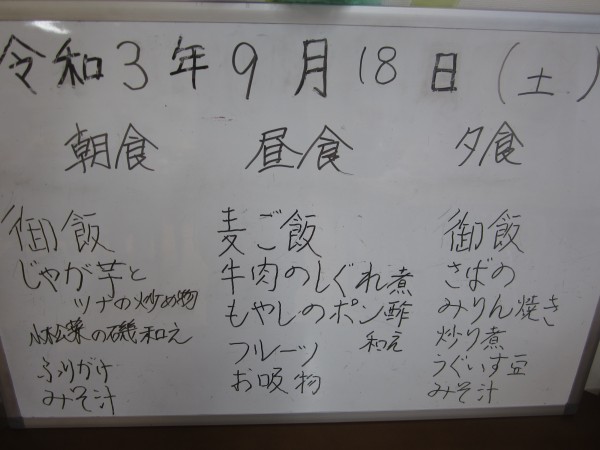 令和3年9月18日(土)
朝食
御飯
じゃが芋と
ツナの炒め物
小松菜の磯和え
ふりかけ
みそ汁
昼食
麦ご飯
牛肉のしぐれ煮
もやしのポン酢
和え
フルーツ
お吸物
夕食
御飯
さばの
みりん焼き
炒り煮
うぐいす豆
みそ汁